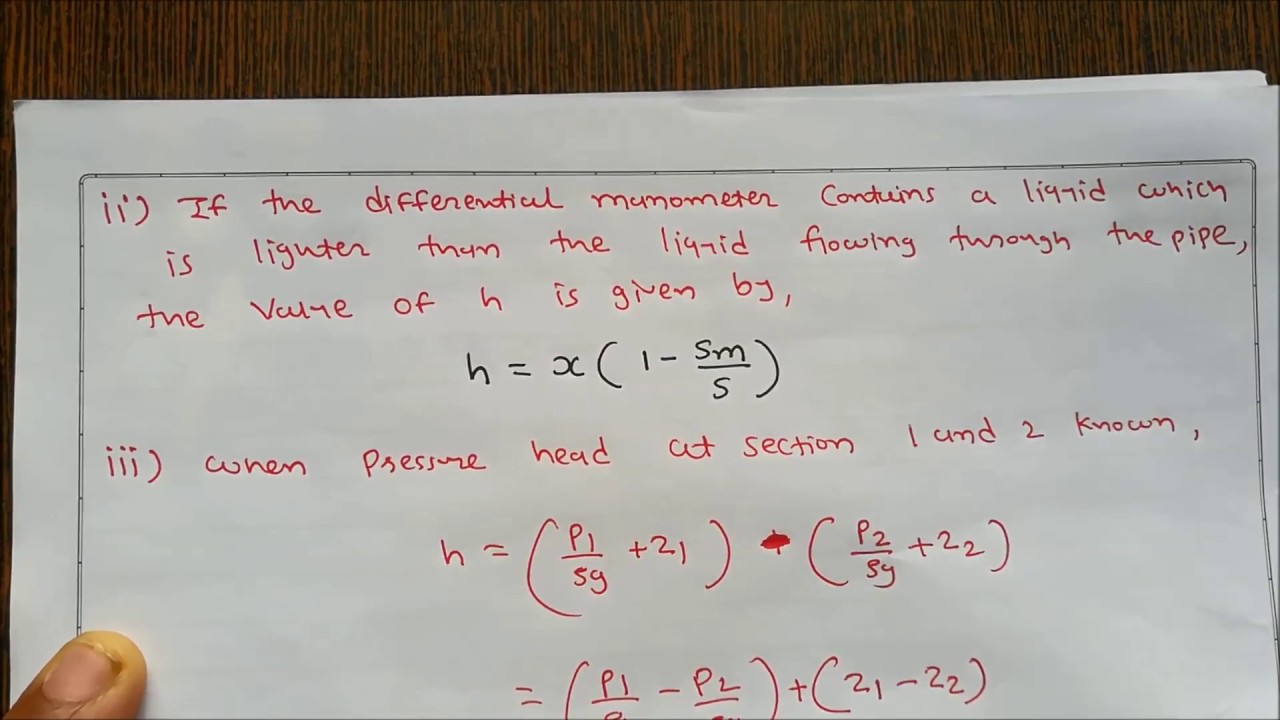 ii) If the differential manometer contains a liquid which
is lighter than the liquid flowing through the pipe,
the value of h is given by,
h = x ( 1 - Sm/S )
iii) when pressure head at section 1 and 2 known,
h = ( P1/ρg + z1 ) - ( P2/ρg + z2 )
= ( P1/ - P2/ ) + ( z1 - z2 )